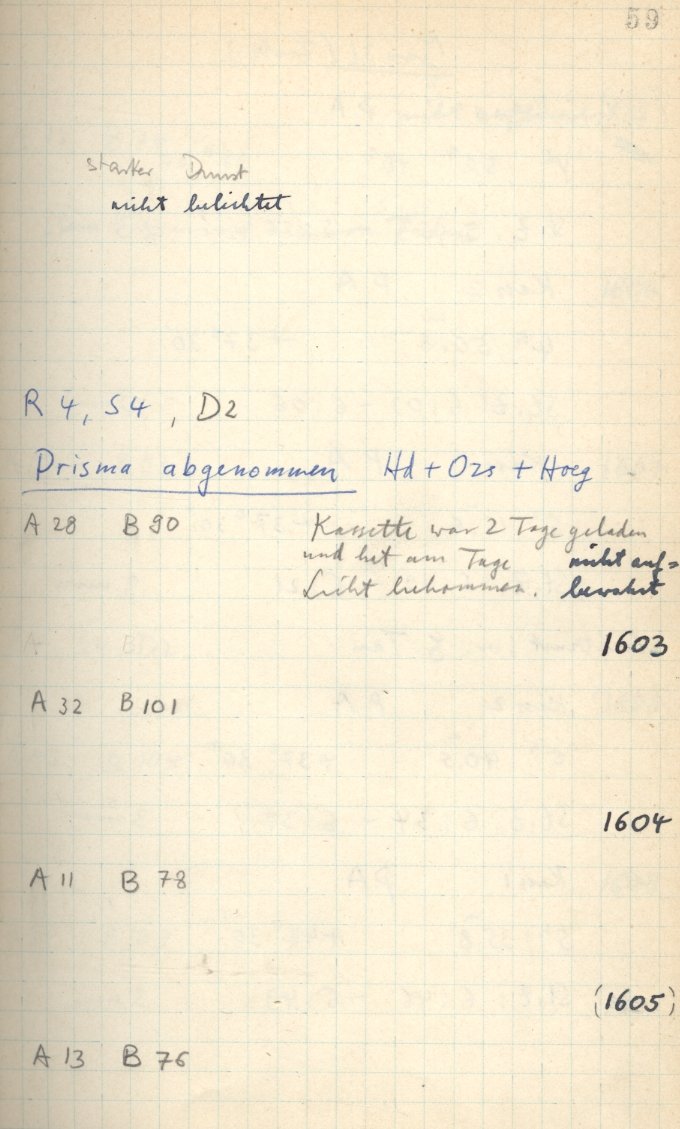 59
starker Dunst
nicht belichtet
R 4, S 4, D2
Prisma abgenommen Hd + Ozs + Hoeg
A 28 B 90 Kassette war 2 Tage geladen
und hat am Tage nicht auf=
Licht bekommen. bewahrt
1603
A 32 B 101
1604
A 11 B 78
(1605)
A 13 B 76